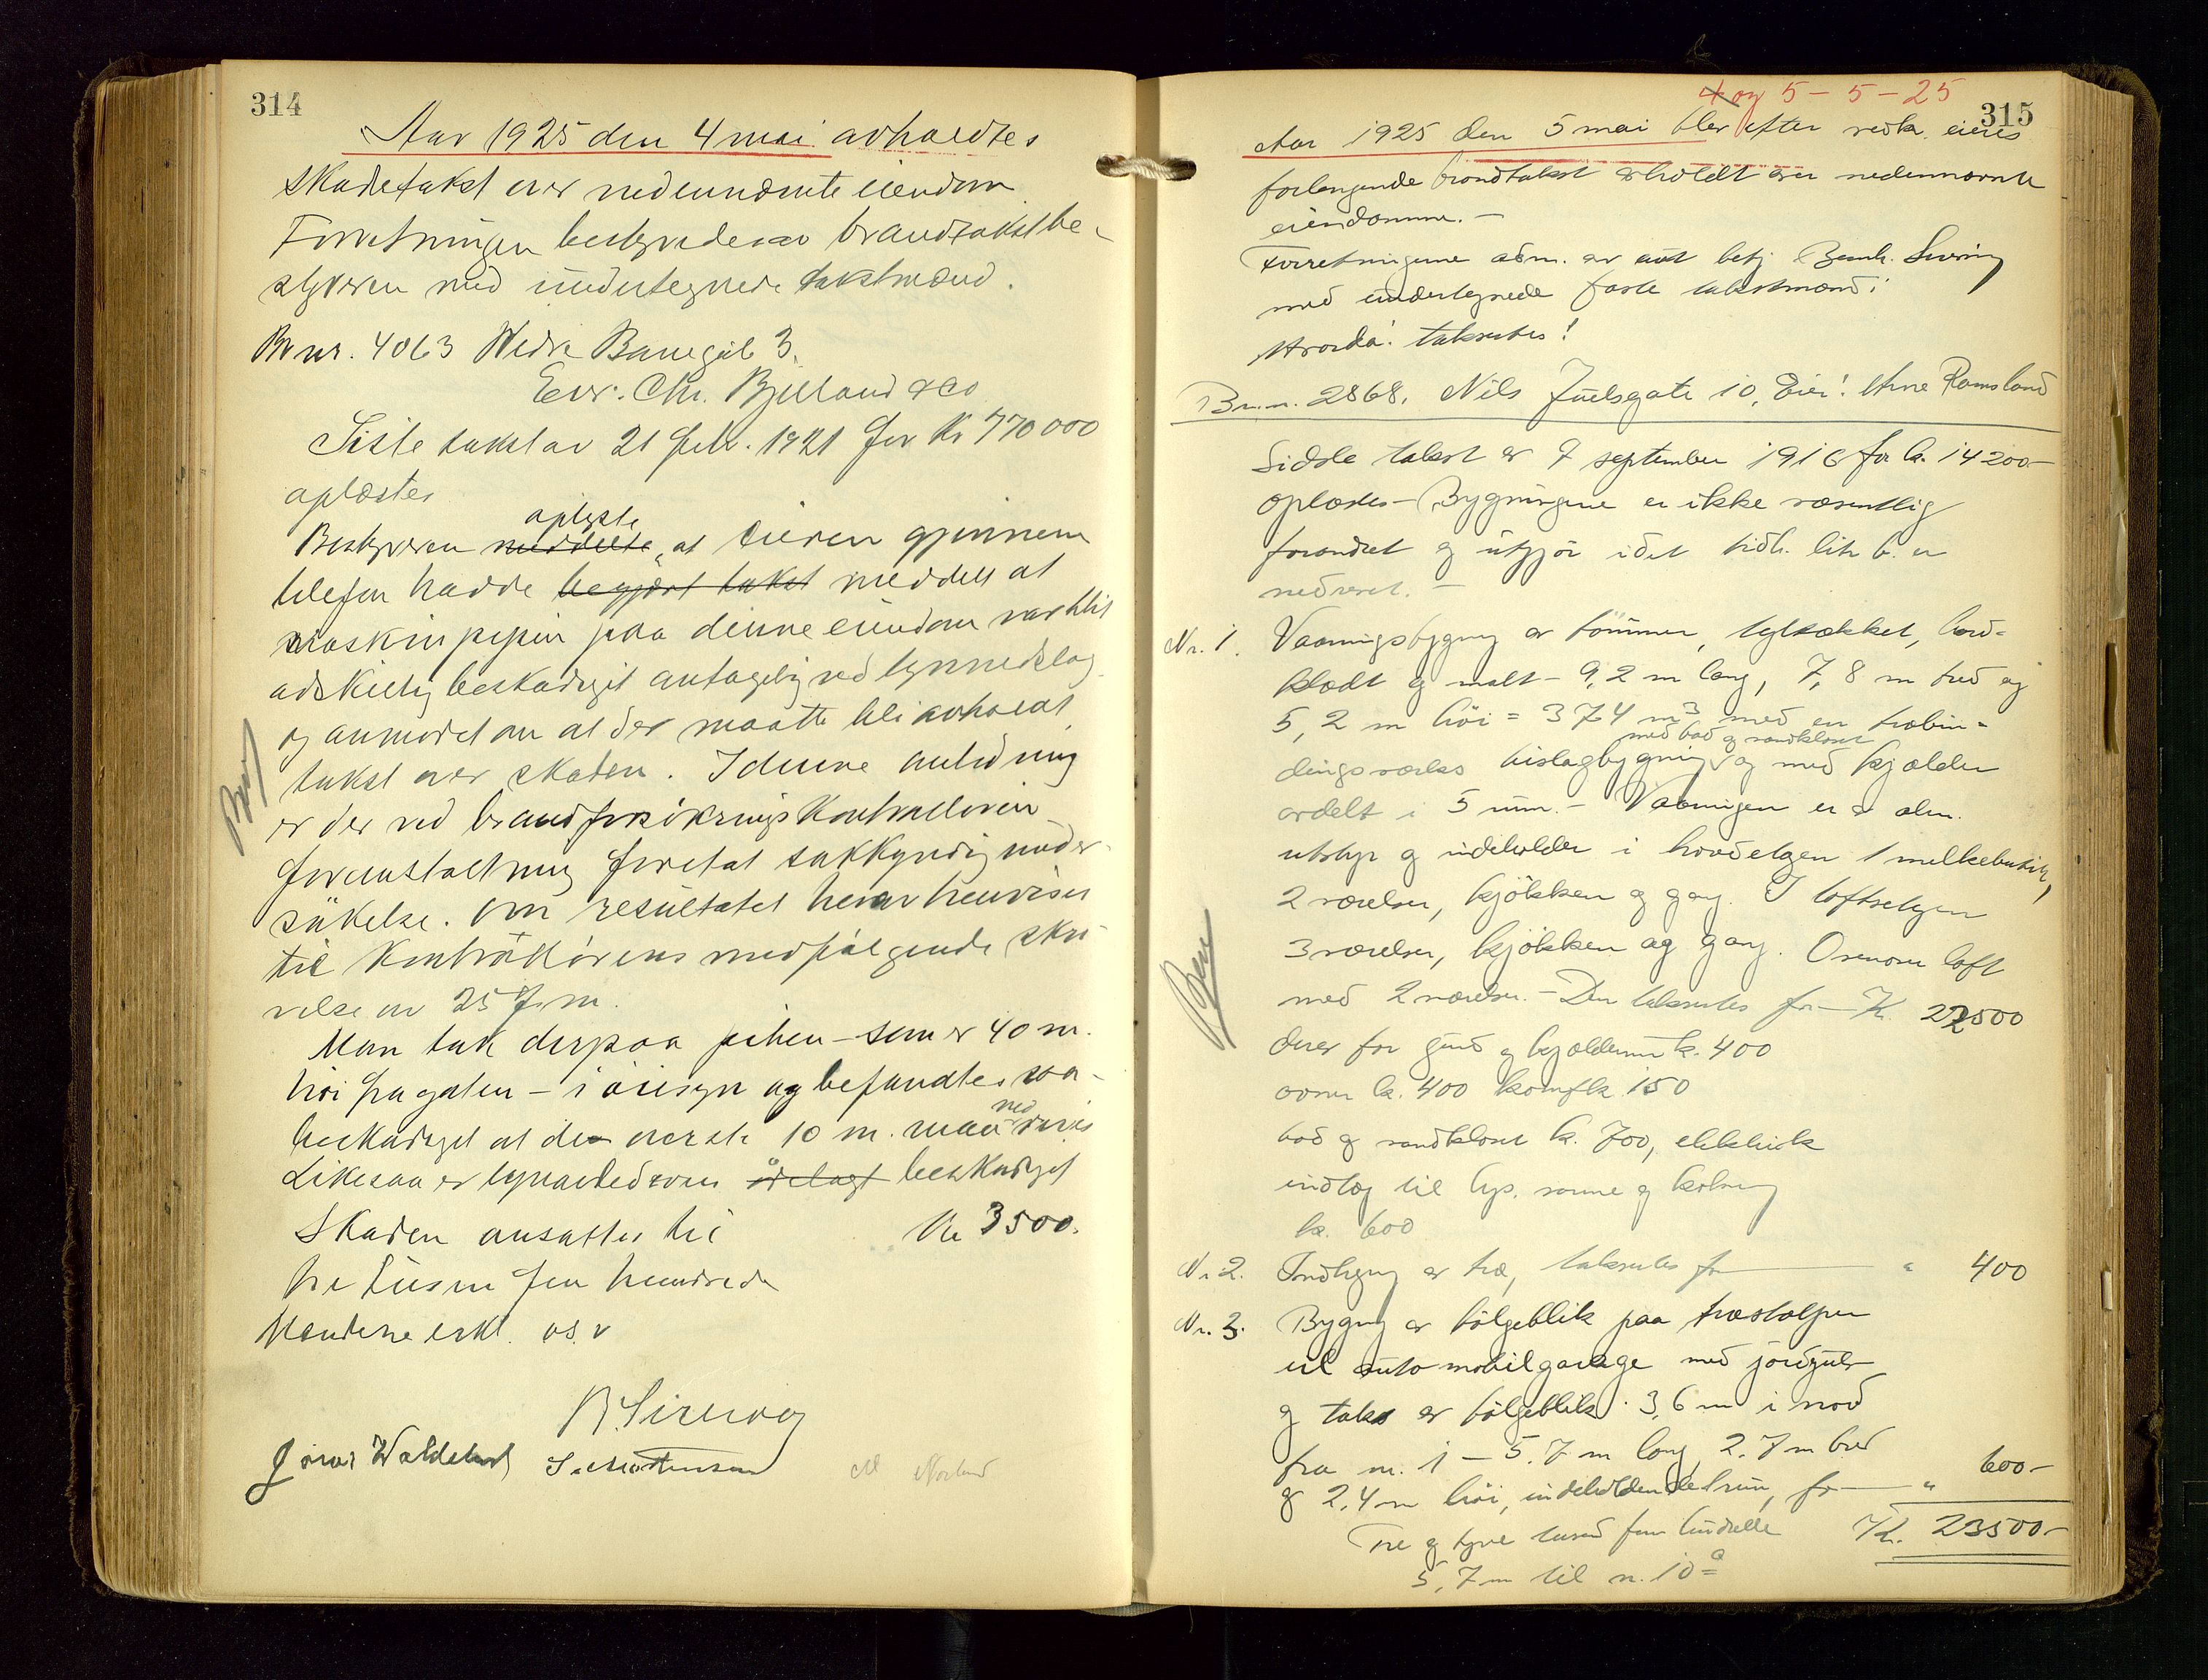 314
Aar 1925 den 4 mai avholdtes
skadetakst over nedennævnte eiendom.
Forretningen bestyredes av brandtakstbe-
styreren med undertegnede takstmænd.
Br nr. 4063 Nedre Banegate 3.
Eier: Chr. Bjelland & Co
Siste takst av 21 febr. 1921 for Kr 770 000
oplæstes
oplyste
Bestyreren meddelte at eieren gjennem
telefon hadde begjært takst meddelt at
maskinpipen paa denne eiendom var blit
adskillig beskadiget antagelig ved lynnedslag
og anmodet om at der maatte bli avholdt
takst over skaden. I denne anledning
er der ved brandforsikringskontrollørens
foranstaltning foretat sakkyndig under-
søkelse. Om resultatet herav henvises
til kontrollørens medfølgende skri-
velse av 25 f.m.
Man tok derpaa pipen – som er 40 m.
høi fra gaten – i øiesyn og befandtes saa
ned
beskadiget at de øverste 10 m. maa rives
Likesaa er lynavlederen ødelagt beskadiget
Skaden ansattes til Kr 3500.
tre tusen fem hundrede
Mændene erkl. o.s.v
B. Sirevaag
M Norland
315
4 og 5 – 5 – 25
Aar 1925 den 5 mai blev efter vedk. eieres
forlangende brandtakst avholdt over nedennævnte
eiendomme. –
Forretningerne adm. av
med undertegnede faste takstmænd:
Hvorda: takseredes!
Br.n. 2868. Nils Juelsgate 10, Eier: Arne Ramsland
Sidste takst av 9 september 1916 for kr. 14200–
oplæstes – Bygningene er ikke væsentlig
forandret og utgjør idet tidl. litr b. er
nedrevet. –
Nr. 1. Vaaningsbygning av tømmer, teglstækket, bord-
klædt og malt – 9,2 m lang, 7,8 m bred og
5,2 m høi = 374 m³ med en trebin-
med bad og vandkloset
dingsverks bislagbygning og med kjælder
avdelt i 5 rum. – Vaaningen er av alm.
utstyr og indeholder i hovedetagen 1 melkebutik,
2 værelser, kjøkken og gang. I loftsetagen
3 værelser, kjøkken og gang. Ovenover loft
med 2 værelser. – Den takseredes for – Kr. 22500
derav for grund og kjældermur kr. 400
ovner kr. 400 komf kr. 150
bad og vandkloset kr. 700, elektrisk
indlæg til lys, varme og kokning
kr. 600
Nr 2. Indhegning av træ, takseredes for " 400
Nr. 3. Bygning av bølgeblik paa træstolper
til automobilgarage med jordgulv
og tak av bølgeblik. 3,6 m i nord
fra nr. 1 – 5,7 m lang, 2,7 m bred
og 2,4 m høi, indeholdende 1 rum, for " 600–
Tre og tyve tusend fem hundrede Kr. 23500–
5,7 m til n. 10ª